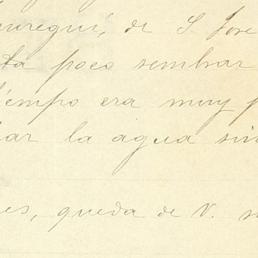 de S. Jose
poco sembrar
tiempo era muy p
ar la agua sin
es, queda de V.